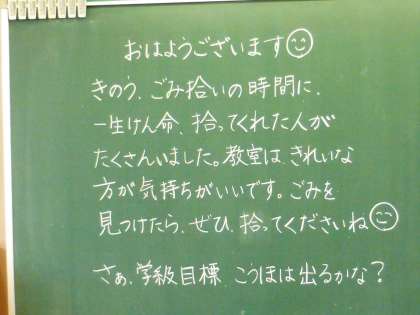 おはようございます
きのう、ごみ拾いの時間に、
一生けん命、拾ってくれた人が
たくさんいました。教室は、きれいな
方が気持ちがいいです。ごみを
見つけたら、ぜひ、拾ってくださいね
さぁ、学級目標、こうほは出るかな?